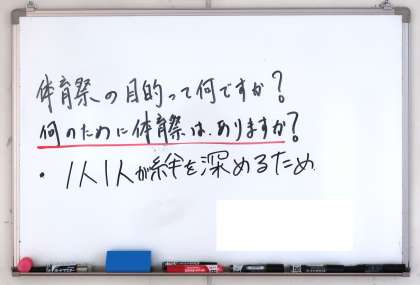 体育祭の目的って何ですか?
何のために体育祭は、ありますか?
・1人1人が絆を深めるため